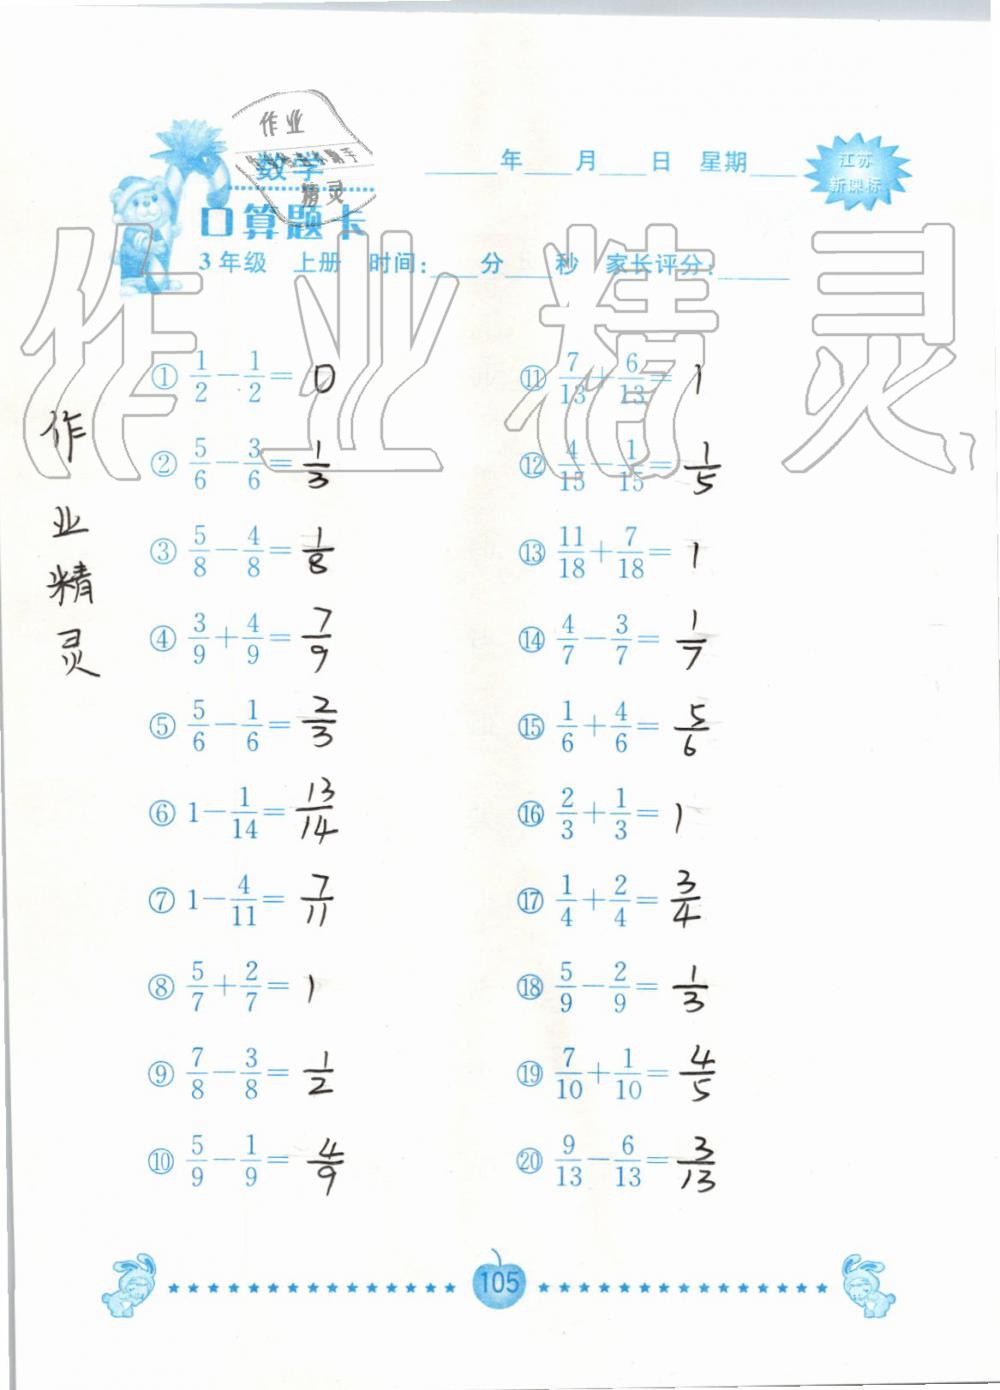 作业
数学
精灵
____年____月____日 星期____
江苏
新课标
口算题卡
3年级 上册 时间:____分____秒 家长评分:____
作业精灵
作业精灵
① 1/2 - 1/2 = 0
② 5/6 - 3/6 = 1/3
③ 5/8 - 4/8 = 1/8
④ 3/9 + 4/9 = 7/9
⑤ 5/6 - 1/6 = 2/3
⑥ 1 - 1/14 = 13/14
⑦ 1 - 4/11 = 7/11
⑧ 5/7 + 2/7 = 1
⑨ 7/8 - 3/8 = 1/2
⑩ 5/9 - 1/9 = 4/9
⑪ 7/13 + 6/13 = 1
⑫ 4/15 - 1/15 = 1/5
⑬ 11/18 + 7/18 = 1
⑭ 4/7 - 3/7 = 1/7
⑮ 1/6 + 4/6 = 5/6
⑯ 2/3 + 1/3 = 1
⑰ 1/4 + 2/4 = 3/4
⑱ 5/9 - 2/9 = 1/3
⑲ 7/10 + 1/10 = 4/5
⑳ 9/13 - 6/13 = 3/13
105